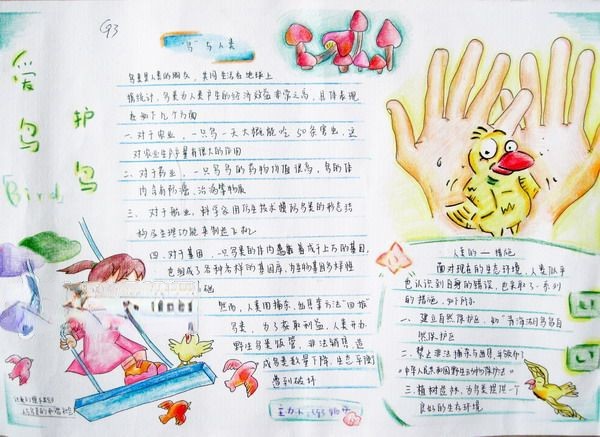 G3
爱鸟
护鸟
「Bird」
"鸟"与人类
鸟类是人类的朋友，共同生活在地球上
据统计，鸟类为人类产生的经济效益非常之高，具体表现
在如下几个方面
一、对于农业，一只鸟一天大概能吃50条害虫，这
对农业生产产量有很大的作用
二、对于药业，一只鸟鸟的药物价值很高，鸟的体
内含有防癌，治病等物质
三、对于航业，科学家用仿生技术模仿鸟类的形态结
构及生理功能来制造飞机
四、对于基因，一只鸟类的体内
着成千上万的基因，
然而，人类用捕杀、出售等方法"回报"
鸟类，为了获取利益，人类开办
野生鸟类
非法销售，造
成鸟类数量下降，生态平衡
遭到破坏
人类的一措施
面对现在的生态环境，人类似乎
也认识到自身的错误，也采取了一系列
的措施，如下所示
一、建立自然保护区，如"青海湖鸟岛自
然保护区
二、禁止非法捕杀与出售，并颁布了
《中华人民共和国野生动物保护法》
三、植树造林，为鸟类提供一个
良好的生存环境